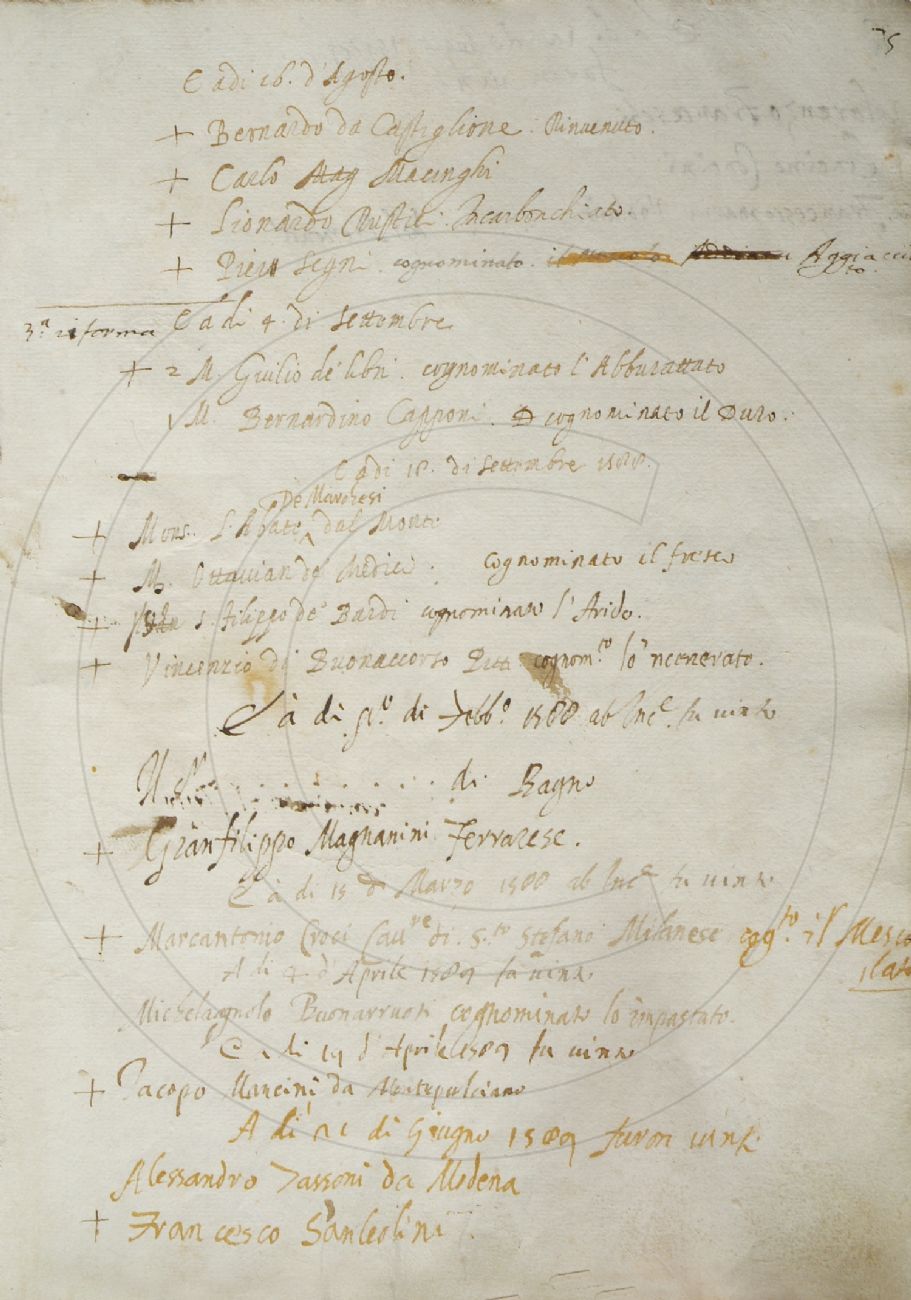 75
E adi 16. d'Agosto.
+ Bernardo da Castiglione. Rinvenuto.
+ Carlo Mag Macinghi
+ Lionardo Rustici. Incarbonchiato.
+ Piero Segni. cognominato. Aggiaccia
to.
3.a riforma E a di 4. di Settembre
+ 2 M. Giulio de' libri. cognominato l'Abburattato
1 M. Bernardino Capponi. cognominato il Duro.
E adi 18. di Settembre 1588.
De Marchesi
+ Mons. l'Abate ^ dal Monte
+ M. Ottavian de Medici. cognominato il fresco
+ S. Filippo de' Bardi cognominato l'Arido.
+ Vincenzio di Buonaccorso Pitti cognom.to lo 'ncenerato.
E à di p.o di Febb.o 1588 ab Inc.e fu vinto
. . . . . . . di Bagno
+ Gianfilippo Magnanini Ferrarese.
E à di 15 di Marzo 1588 ab Inc.e fu vinto
+ Marcantonio Croci Cav.re di S.to Stefano Milanese cog.to il Mesco
lato
A di 4 d'Aprile 1589 fu vinto
Michelagnolo Buonarruoti cognominato lo 'mpastato.
E a di 19 d'Aprile 1589 fu vinto
+ Jacopo Mancini da Montepulciano
A di 21 di Giugno 1589 furon vinti
Alessandro Tassoni da Modena
+ Francesco Sanleolini